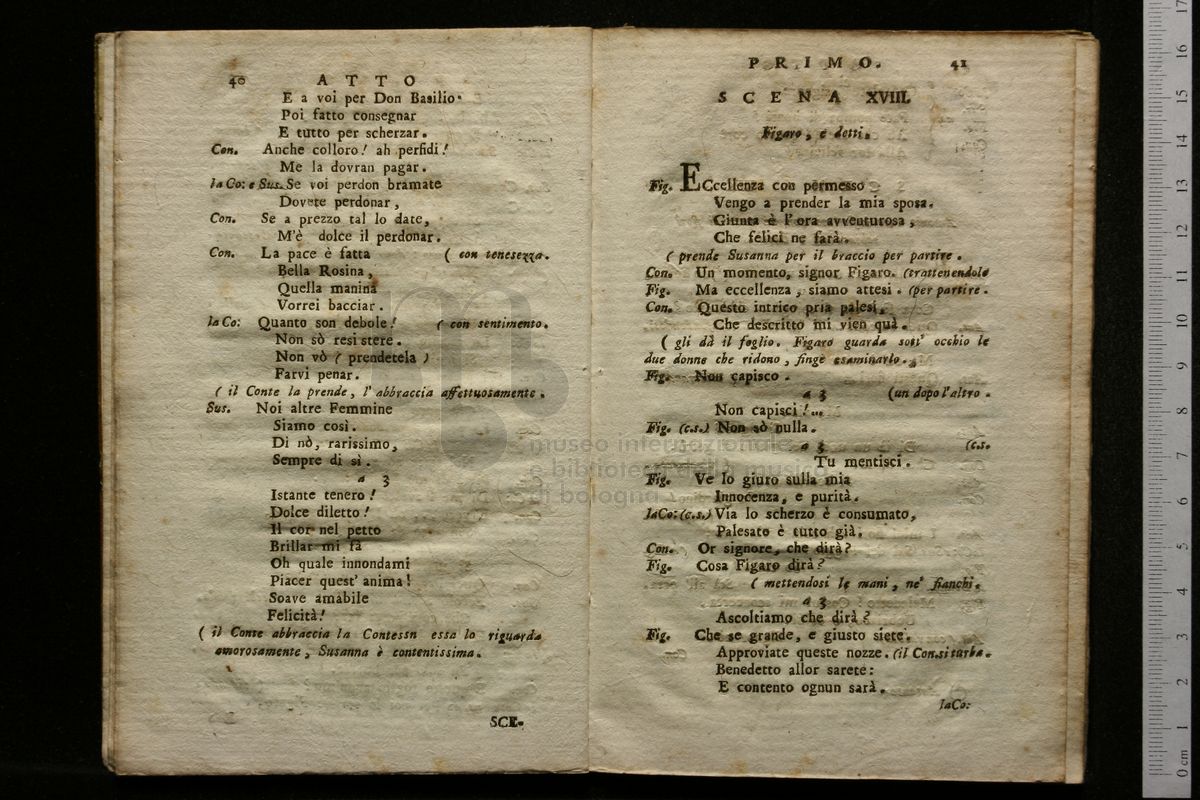 40 ATTO
E a voi per Don Basilio.
Poi fatto consegnar
E tutto per scherzar.
Con. Anche colloro! ah perfidi!
Me la dovran pagar.
la Co: e Sus. Se voi perdon bramate
Dovete perdonar,
Con. Se a prezzo tal lo date,
M'è dolce il perdonar.
Con. La pace è fatta ( con tenesezza.
Bella Rosina,
Quella manina
Vorrei bacciar.
la Co: Quanto son debole! ( con sentimento.
Non sò resistere.
Non vò ( prendetela )
Farvi penar.
( il Conte la prende, l'abbraccia affettuosamente.
Sus. Noi altre Femmine
Siamo così.
Di nò, rarissimo,
Sempre di sì.
a 3
Istante tenero!
Dolce diletto!
Il cor nel petto
Brillar mi fà
Oh quale innondami
Piacer quest' anima!
Soave amabile
Felicità!
( il Conte abbraccia la Contessn essa lo riguarda
amorosamente, Susanna è contentissima.
SCE-
PRIMO. 41
SCENA XVIII.
Figaro, e detti.
Fig. ECcellenza con permesso
Vengo a prender la mia sposa.
Giunta è l'ora avventurosa,
Che felici ne farà.
( prende Susanna per il braccio per partire.
Con. Un momento, signor Figaro. (trattenendolo
Fig. Ma eccellenza, siamo attesi. (per partire.
Con. Questo intrico pria palesi,
Che descritto mi vien quà.
( gli dà il foglio. Figaro guarda sott' occhio le
due donne che ridono, finge esaminarlo.
Fig. Non capisco.
a 3 (un dopo l'altro.
Non capisci!...
Fig. (c.s.) Non sò nulla.
a 3 (c.s.
Tu mentisci.
Fig. Ve lo giuro sulla mia
Innocenza, e purità.
laCo: (c.s.) Via lo scherzo è consumato,
Palesato è tutto già.
Con. Or signore, che dirà?
Fig. Cosa Figaro dirà?
( mettendosi le mani, ne' fianchi.
a 3
Ascoltiamo che dirà?
Fig. Che se grande, e giusto siete.
Approviate queste nozze. (il Con. si turba.
Benedetto allor sarete:
E contento ognun sarà.
laCo:
museo internazionale
e biblioteca della musica
di bologna
0 cm 1 2 3 4 5 6 7 8 9 10 11 12 13 14 15 16 17